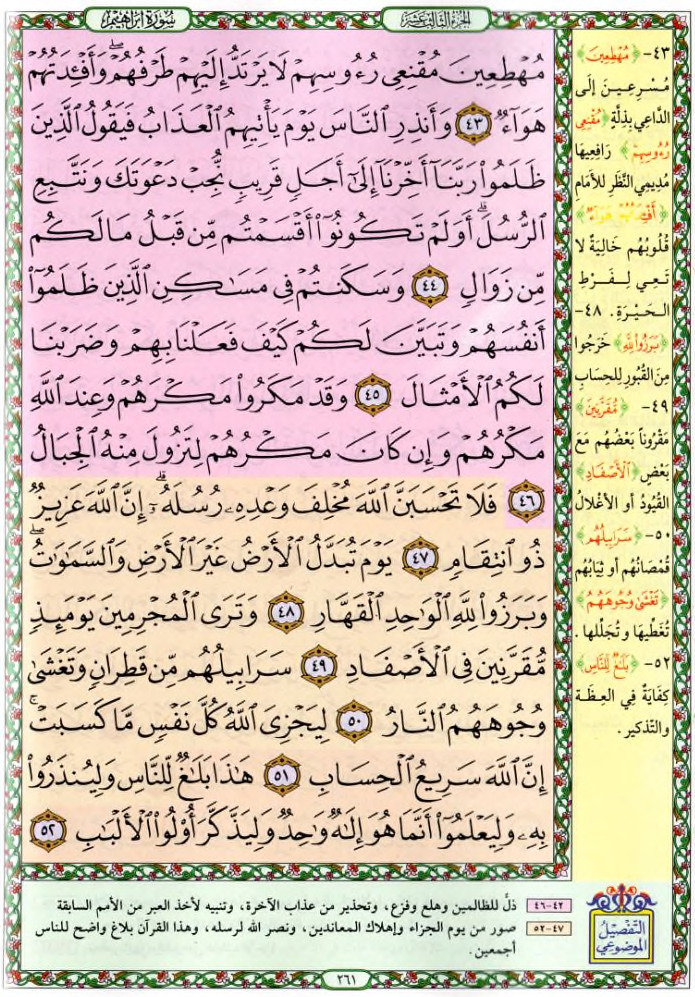 الجزء الثالث عشر
سورة إبراهيم
مُهْطِعِينَ مُقْنِعِى رُءُوسِهِمْ لَا يَرْتَدُّ إِلَيْهِمْ طَرْفُهُمْ ۖ وَأَفْـِٔدَتُهُمْ
هَوَآءٌ ﴿٤٣﴾ وَأَنذِرِ ٱلنَّاسَ يَوْمَ يَأْتِيهِمُ ٱلْعَذَابُ فَيَقُولُ ٱلَّذِينَ
ظَلَمُوا۟ رَبَّنَآ أَخِّرْنَآ إِلَىٰٓ أَجَلٍ قَرِيبٍ نُّجِبْ دَعْوَتَكَ وَنَتَّبِعِ
ٱلرُّسُلَ ۗ أَوَلَمْ تَكُونُوٓا۟ أَقْسَمْتُم مِّن قَبْلُ مَا لَكُم
مِّن زَوَالٍ ﴿٤٤﴾ وَسَكَنتُمْ فِى مَسَـٰكِنِ ٱلَّذِينَ ظَلَمُوٓا۟
أَنفُسَهُمْ وَتَبَيَّنَ لَكُمْ كَيْفَ فَعَلْنَا بِهِمْ وَضَرَبْنَا
لَكُمُ ٱلْأَمْثَالَ ﴿٤٥﴾ وَقَدْ مَكَرُوا۟ مَكْرَهُمْ وَعِندَ ٱللَّهِ
مَكْرُهُمْ وَإِن كَانَ مَكْرُهُمْ لِتَزُولَ مِنْهُ ٱلْجِبَالُ
﴿٤٦﴾ فَلَا تَحْسَبَنَّ ٱللَّهَ مُخْلِفَ وَعْدِهِۦ رُسُلَهُۥٓ ۗ إِنَّ ٱللَّهَ عَزِيزٌ
ذُو ٱنتِقَامٍ ﴿٤٧﴾ يَوْمَ تُبَدَّلُ ٱلْأَرْضُ غَيْرَ ٱلْأَرْضِ وَٱلسَّمَـٰوَٰتُ ۖ
وَبَرَزُوا۟ لِلَّهِ ٱلْوَٰحِدِ ٱلْقَهَّارِ ﴿٤٨﴾ وَتَرَى ٱلْمُجْرِمِينَ يَوْمَئِذٍ
مُّقَرَّنِينَ فِى ٱلْأَصْفَادِ ﴿٤٩﴾ سَرَابِيلُهُم مِّن قَطِرَانٍ وَتَغْشَىٰ
وُجُوهَهُمُ ٱلنَّارُ ﴿٥٠﴾ لِيَجْزِىَ ٱللَّهُ كُلَّ نَفْسٍ مَّا كَسَبَتْ ۚ
إِنَّ ٱللَّهَ سَرِيعُ ٱلْحِسَابِ ﴿٥١﴾ هَـٰذَا بَلَـٰغٌ لِّلنَّاسِ وَلِيُنذَرُوا۟
بِهِۦ وَلِيَعْلَمُوٓا۟ أَنَّمَا هُوَ إِلَـٰهٌ وَٰحِدٌ وَلِيَذَّكَّرَ أُو۟لُوا۟ ٱلْأَلْبَـٰبِ ﴿٥٢﴾
٤٣- ﴿مُهْطِعِينَ﴾
مُسْرِعِينَ إلَى
الدَّاعِي بِذِلَّةٍ ﴿مُقْنِعِى
رُءُوسِهِمْ﴾ رَافِعِيهَا
مُدِيمِي النَّظَرِ للأَمَامِ
﴿أَفْـِٔدَتُهُمْ هَوَآءٌ﴾
قُلُوبُهُم خَالِيَةٌ لا
تَعِي لِفَرْطِ
الحَيْرَةِ. ٤٨-
﴿بَرَزُوا۟ لِلَّهِ﴾ خَرَجُوا
مِنَ القُبُورِ لِلحِسَابِ
٤٩- ﴿مُقَرَّنِينَ﴾
مَقْرُوناً بَعْضُهُم مَعَ
بَعْضٍ ﴿ٱلْأَصْفَادِ﴾
القُيُودُ أو الأغْلالُ
٥٠- ﴿سَرَابِيلُهُم﴾
قُمْصَانُهُم أو ثِيَابُهُم
﴿تَغْشَىٰ وُجُوهَهُمُ﴾
تُغَطِّيهَا وتُجَلِّلُها.
٥٢- ﴿بَلَـٰغٌ لِّلنَّاسِ﴾
كِفَايَةٌ فِي العِظَةِ
والتّذكير.
التَّفْصِيلُ
الموضوعي
٤٢-٤٦ ذلٌّ للظالمين وهلع وفزع، وتحذير من عذاب الآخرة، وتنبيه لأخذ العبر من الأمم السابقة
٤٧-٥٢ صور من يوم الجزاء وإهلاك المعاندين، ونصر الله لرسله، وهذا القرآن بلاغ واضح للناس
أجمعين.
٢٦١